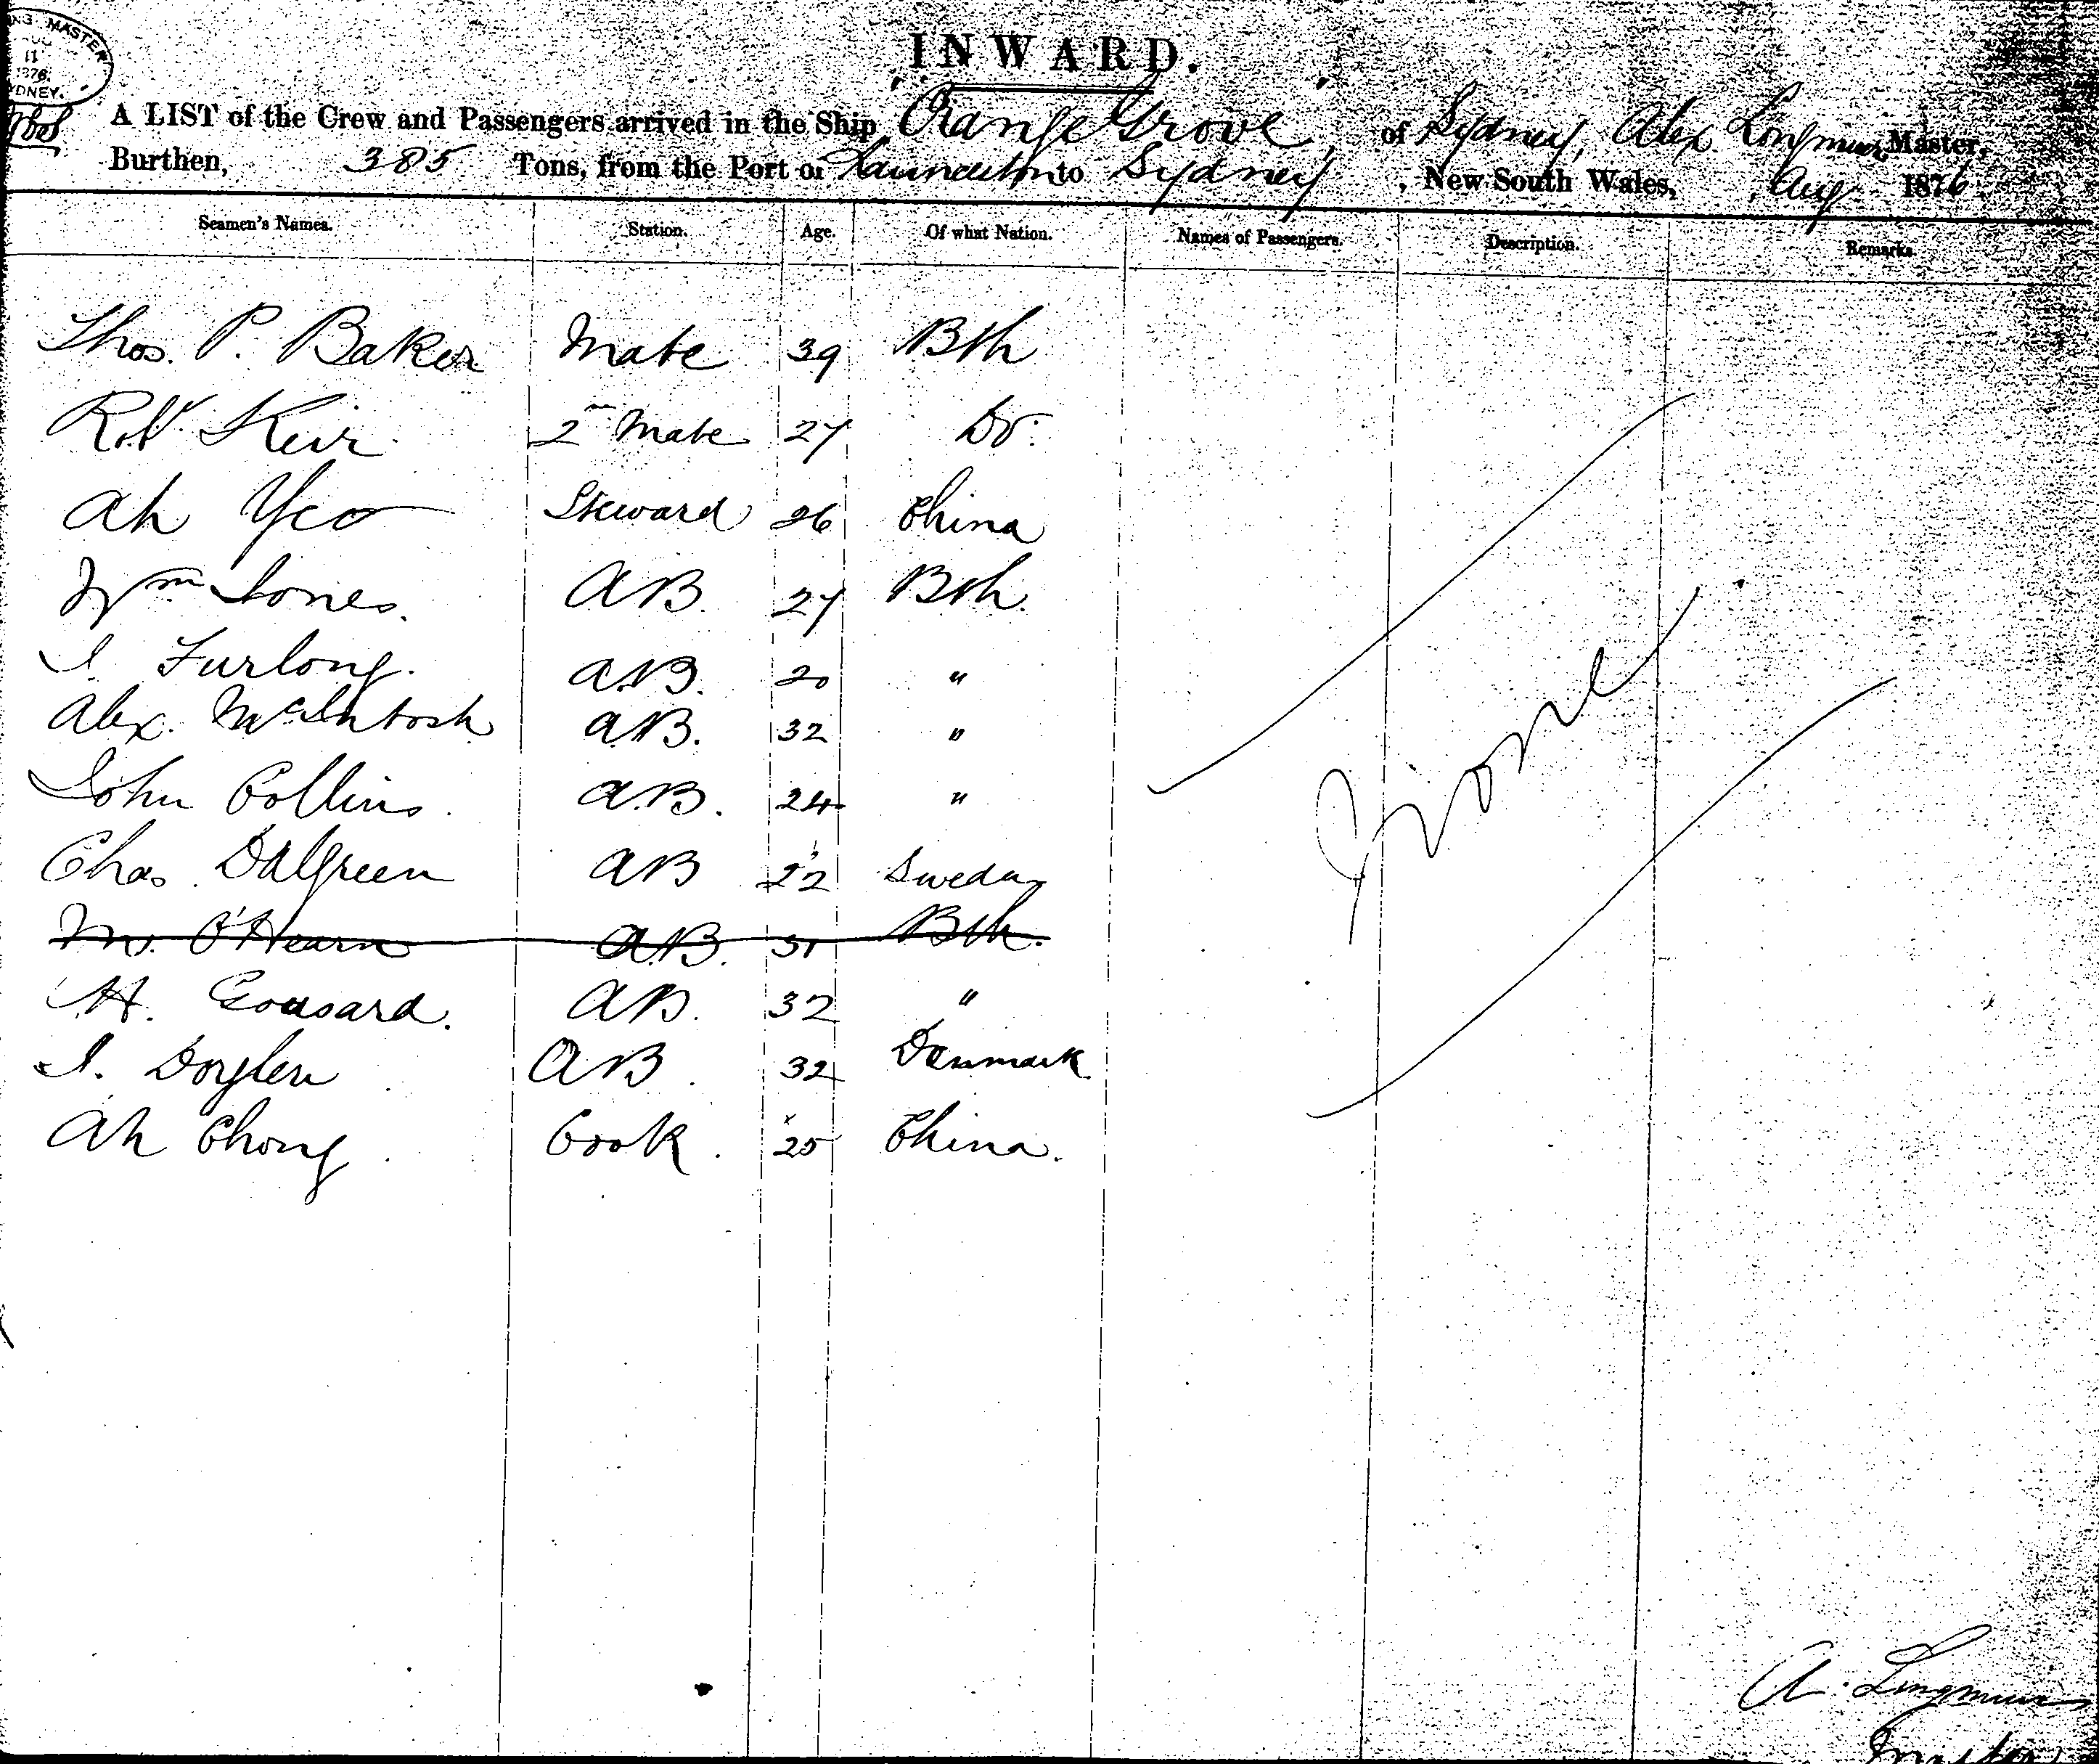 MASTER
11
1876
SYDNEY.
INWARD.
A LIST of the Crew and Passengers arrived in the Ship "Orange Grove", of Sydney, Alex Longmuir Master,
Burthen, 385 Tons, from the Port of Launceston to Sydney, New South Wales, Aug 1876
Seamen's Names. Station. Age. Of what Nation. Names of Passengers. Description. Remarks
Thos. P. Baker Mate 39 Bth
Robt. Keir 2nd Mate 27 Do.
Ah Yeo Steward 26 China
Wm Jones. AB. 27 Bth.
J. Furlong. A.B. 20 "
Alex. McIntosh A.B. 32 "
John Collins. A.B. 24 "
Chas. Dalgreen AB 22 Sweden
M. O'Hearn A.B. 31 Bth.
H. AB. 32 "
J. AB. 32 Denmark
Ah Chong. Cook. 25 China.
A. Longmuir
Master